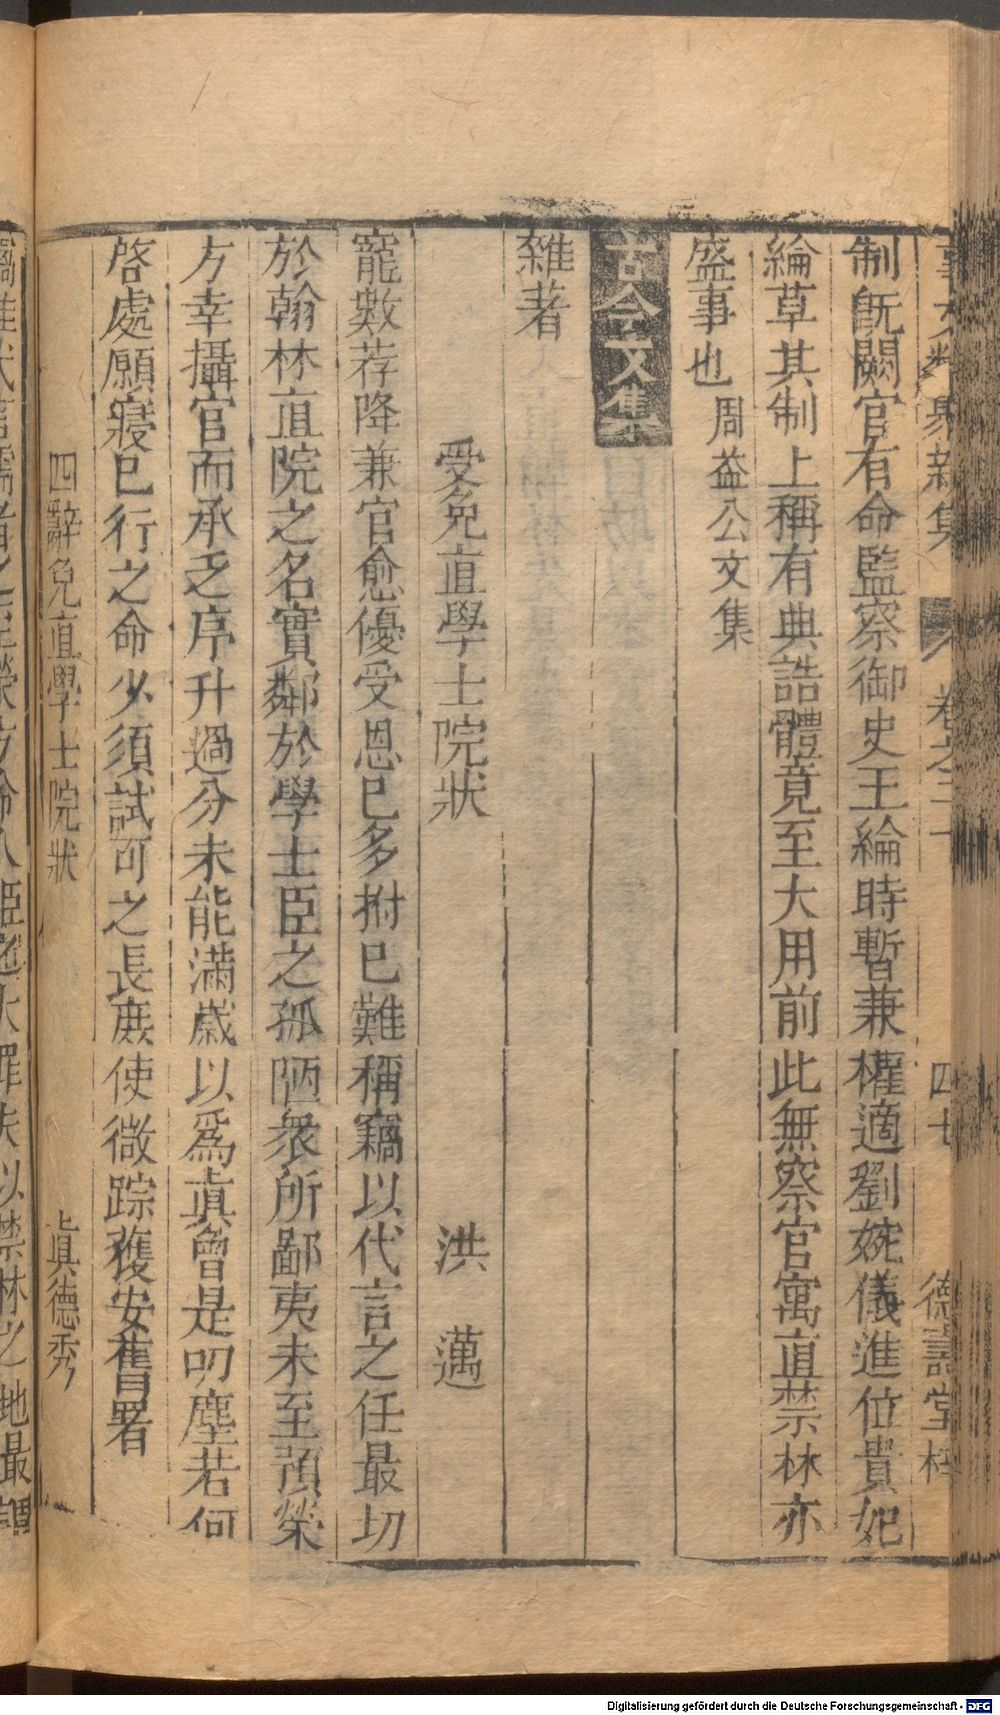 事文類聚新集 卷之二十 四七 德壽堂梓
制既闕官有命監察御史王綸時暫兼權適劉婉儀進位貴妃
綸草其制上稱有典誥體竟至大用前此無察官寓直禁林亦
盛事也 周益公文集
古今文集
雜著
受免直學士院狀 洪邁
寵數荐降兼官愈優受恩已多拊已難稱竊以代言之任最切
於翰林直院之名實鄰於學士臣之孤陋衆所鄙夷未至預榮
方幸攝官而承乏序升過分未能滿歲以爲眞曾是叨塵若何
啓處願寢已行之命少須試可之長庶使微踪獲安舊署
四辭免直學士院狀 眞德秀
臣 大罪 以禁林之地最
Digitalisierung gefördert durch die Deutsche Forschungsgemeinschaft - DFG